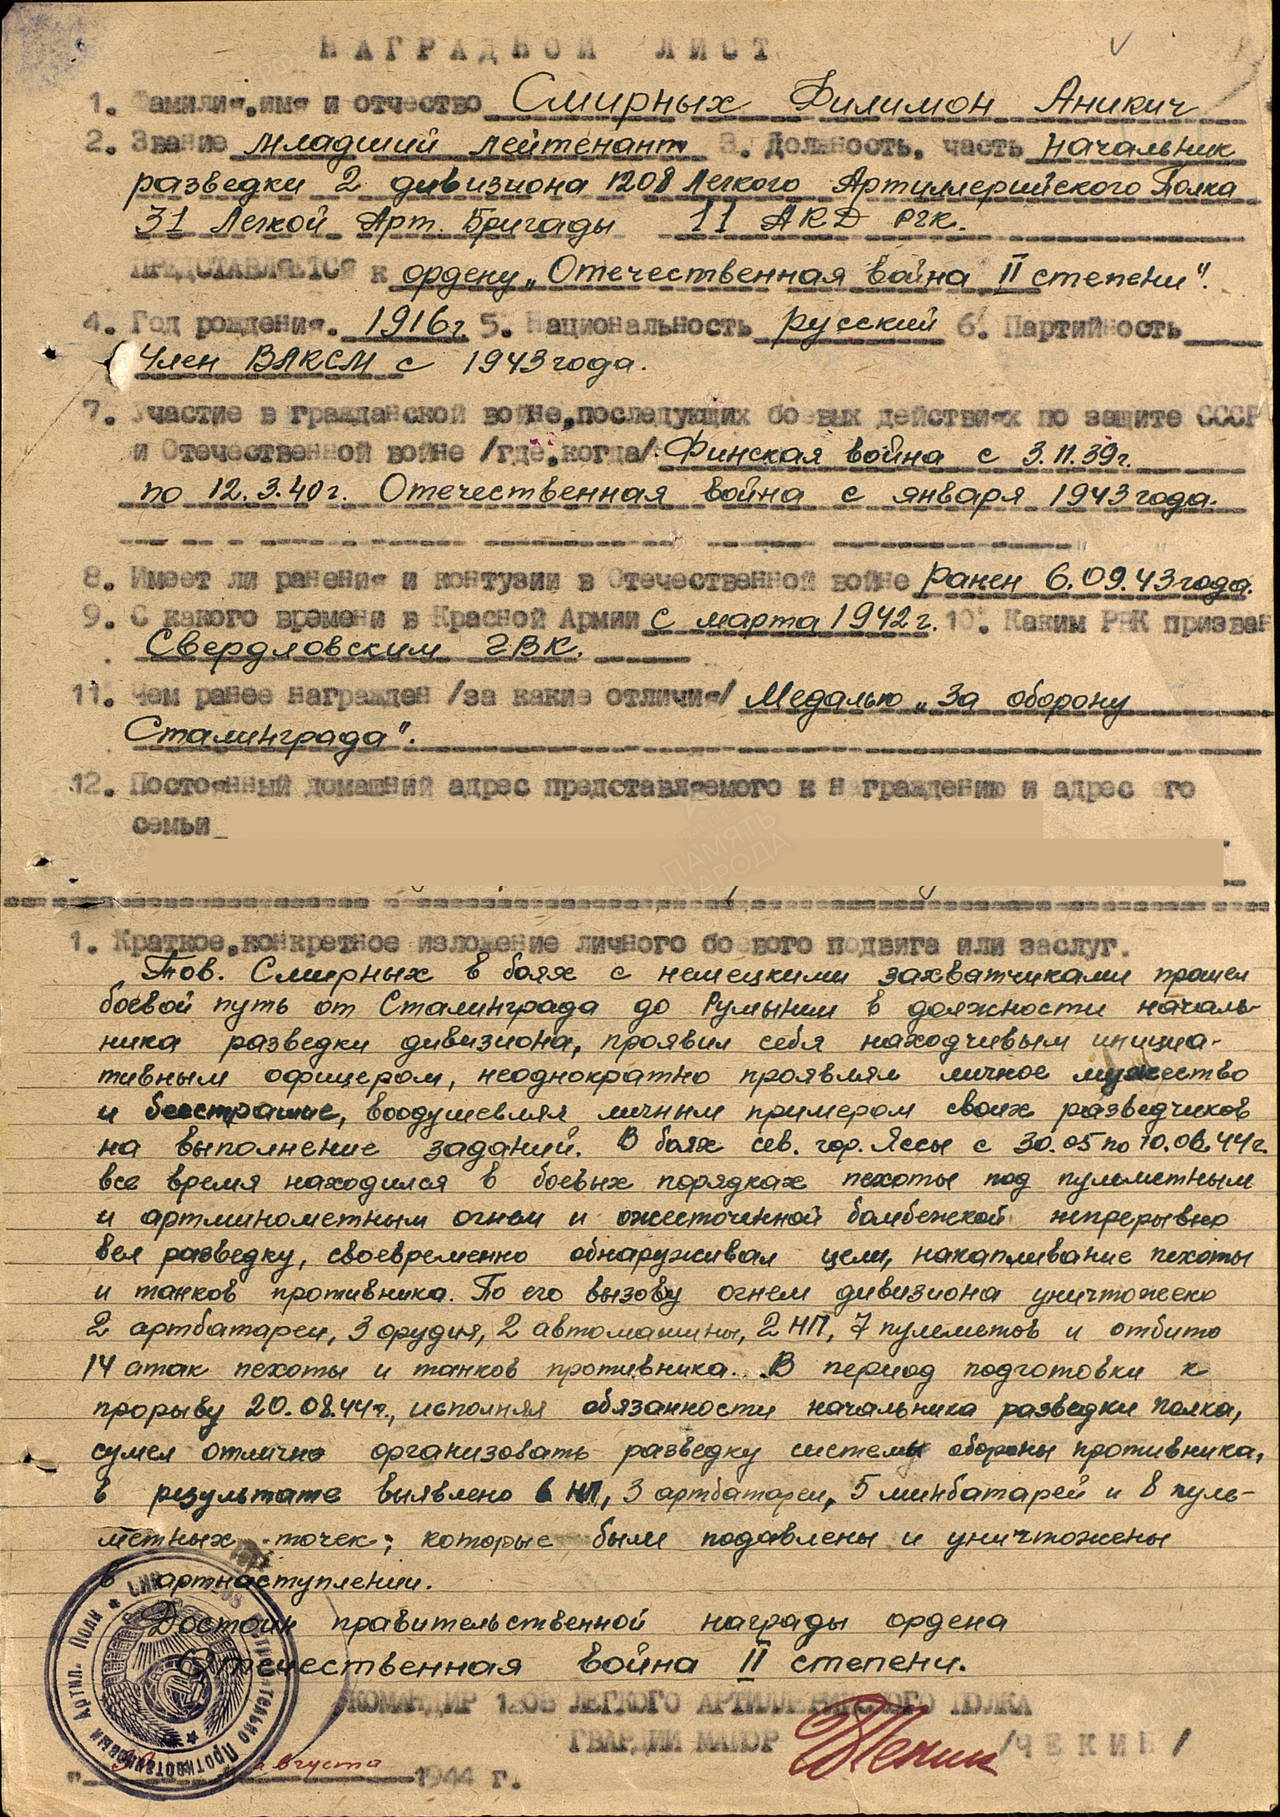 НАГРАДНОЙ ЛИСТ
1. Фамилия, имя и отчество Смирных Филимон Аникич
2. Звание младший лейтенант 3. Должность, часть начальник
разведки 2 дивизиона 1208 Легкого Артиллерийского Полка
31 Легкой Арт. Бригады 11 АКД РГК.
ПРЕДСТАВЛЯЕТСЯ к ордену „Отечественная война II степени".
4. Год рождения. 1916г. 5. Национальность русский 6. Партийность
Член ВЛКСМ с 1943 года.
7. Участие в гражданской войне, последующих боевых действиях по защите СССР
и Отечественной войне /где, когда/ Финская война с 3.11.39г.
по 12.3.40г. Отечественная война с января 1943 года.
8. Имеет ли ранения и контузии в Отечественной войне ранен 6.09.43 года.
9. С какого времени в Красной Армии с марта 1942 г. 10. Каким РВК призван
Свердловским ГВК.
11. Чем ранее награжден /за какие отличия/ Медалью „За оборону
Сталинграда".
12. Постоянный домашний адрес представляемого к награждению и адрес его
семьи
ПАМЯТЬ
НАРОДА
1. Краткое, конкретное изложение личного боевого подвига или заслуг.
Тов. Смирных в боях с немецкими захватчиками прошел
боевой путь от Сталинграда до Румынии в должности началь-
ника разведки дивизиона, проявил себя находчивым инициа-
тивным офицером, неоднократно проявлял личное мужество
и бесстрашие, воодушевляя личным примером своих разведчиков
на выполнение заданий. В боях сев. гор. Яссы с 30.05 по 10.06.44г.
все время находился в боевых порядках пехоты под пулеметным
и артминометным огнем и ожесточенной бомбежкой непрерывно
вел разведку, своевременно обнаруживал цели, накапливание пехоты
и танков противника. По его вызову огнем дивизиона уничтожено
2 артбатареи, 3 орудия, 2 автомашины, 2 НП, 7 пулеметов и отбито
14 атак пехоты и танков противника. В период подготовки к
прорыву 20.08.44г., исполняя обязанности начальника разведки полка,
сумел отлично организовать разведку системы обороны противника,
в результате выявлено 6 НП, 3 артбатареи, 5 минбатарей и 8 пуле-
метных точек, которые были подавлены и уничтожены
в артнаступлении.
Достоин правительственной награды ордена
Отечественная война II степени.
КОМАНДИР 1208 ЛЕГКОГО АРТИЛЛЕРИЙСКОГО ПОЛКА
ГВАРДИИ МАЙОР /ЧЕКИН/
августа 1944 г.